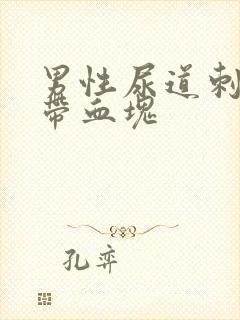 男性尿道刺
带血塊
孔弈